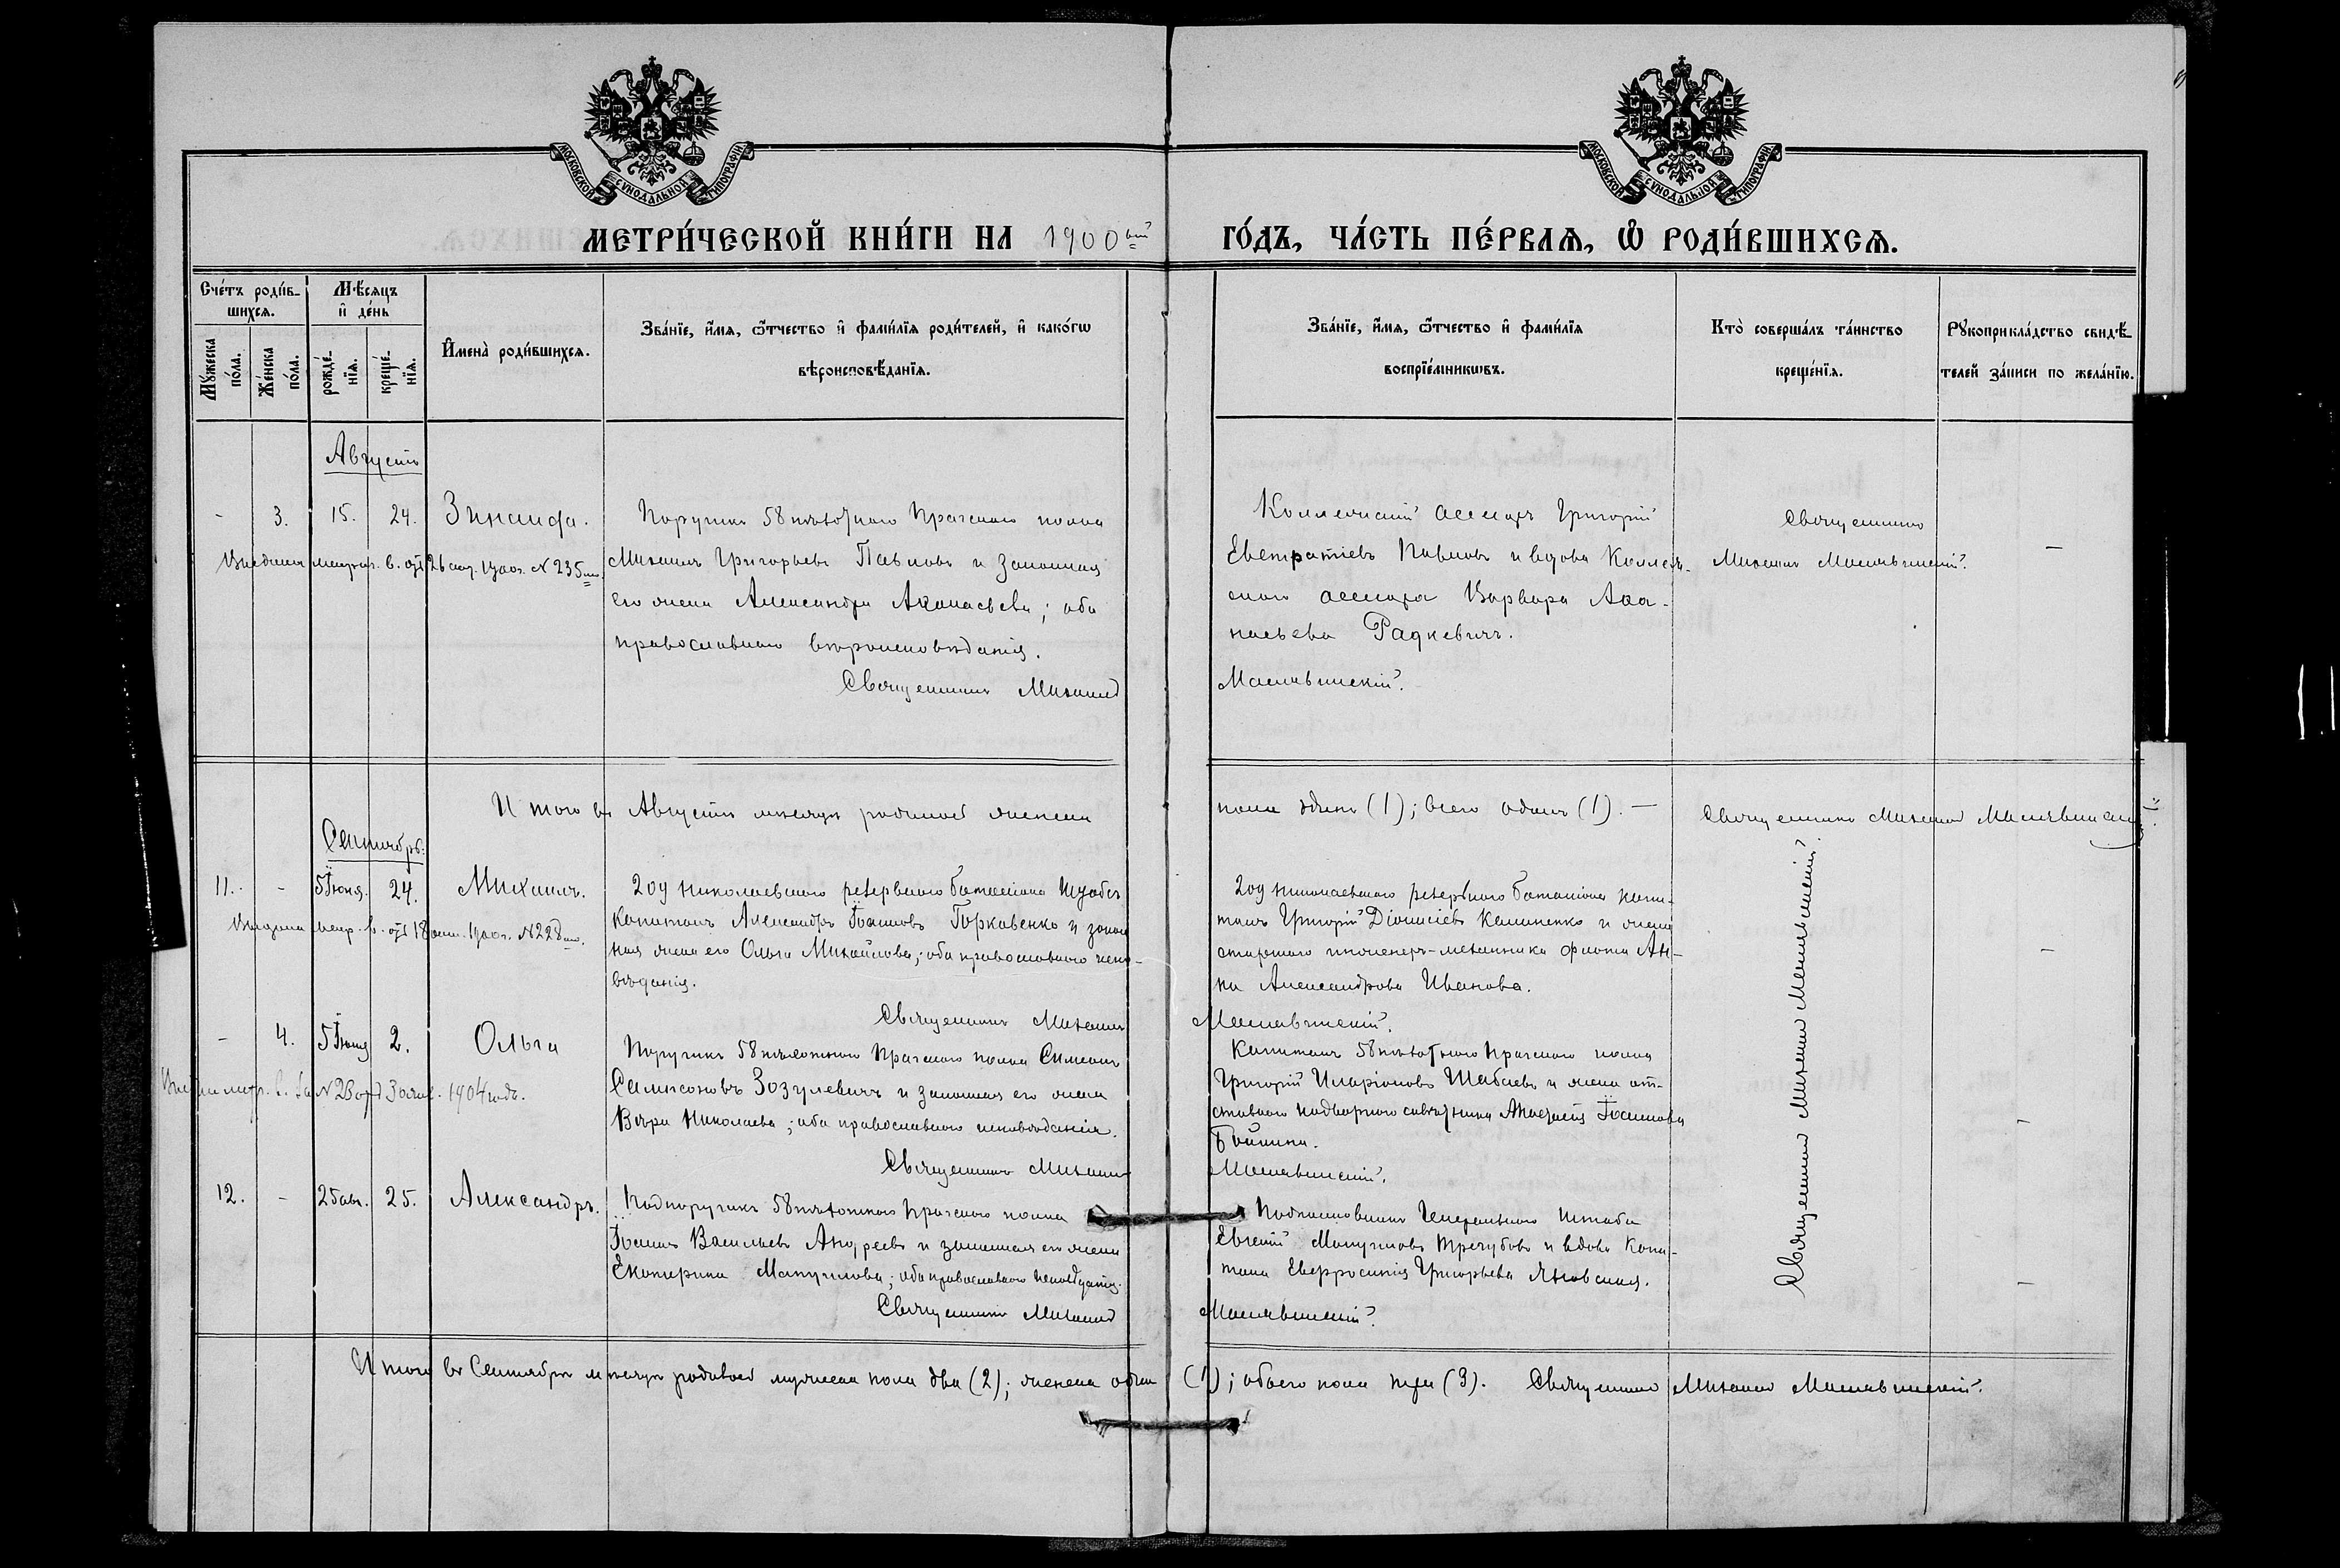 МОСКОВСКОЙ СѴНОДАЛЬНОЙ ТИПОГРАФІИ
МОСКОВСКОЙ СѴНОДАЛЬНОЙ ТИПОГРАФІИ
МЕТРИ́ЧЕСКОЙ КНИ́ГИ НА 1900ый ГО́ДЪ, ЧА́СТЬ ПЕ́РВАЯ, Ѡ҆ РОДИ́ВШИХСЯ.
Сче́тъ роди́в-
шихся.
Мѣ́сяцъ
и҆ де́нь
Му́жеска по́ла.
Же́нска по́ла.
рожде́-нїя.
креще́-нїя.
И҆мена̀ роди́вшихся.
Зва́нїе, и҆́мя, ѻ҆́тчество и҆ фами́лїя роди́телей, и҆ како́гѡ
вѣроисповѣ́данїя.
Зва́нїе, и҆́мя, ѻ҆́тчество и҆ фами́лїя
воспрїе́мникѡвъ.
Кто̀ соверша́лъ та́инство
креще́нїя.
Рꙋкоприкла́дство свидѣ́-
телей за́писи по жела́нїю.
Августъ
- 3. 15. 24. Зинаида.
Поручикъ 58 пѣхотнаго Прагскаго полка
Михаилъ Григорьевъ Павловъ и законная
его жена Александра Аѳанасьева; оба
православнаго вѣроисповѣданія.
Священникъ Михаилъ
Коллежскій ассесоръ Григорій
Евстратіевъ Павловъ и вдова Коллеж-
скаго ассесора Варвара Аѳа-
насьева Радкевичъ.
Маславинскій.
Священникъ
Михаилъ Маславинскій.
—
1900г. № 235
Итого въ Августѣ мѣсяцѣ родилось женска
пола одинъ (1); всего одинъ (1). —
Священникъ Михаилъ Маславинскій.
Сентябрь.
11. - 5 Іюня. 24. Михаилъ.
1900г. № 228
209 Николаевскаго резервнаго баталіона Штабсъ
Капитанъ Александръ Іоанновъ Горкавенко и закон
ная жена его Ольга Михайлова; оба православнаго испо-
вѣданія.
Священникъ Михаилъ
209 Николаевскаго резервнаго баталіона капи-
танъ Григорій Діонисіевъ Калиненко и жена
старшаго инженеръ-механика флота Ан-
на Александрова Иванова.
Маславинскій.
—
- 4. 5 Іюня 2. Ольга
1904 года.
Поручикъ 58 пѣхотнаго Прагскаго полка Симеонъ
Самсоновъ Зозулевичъ и законная его жена
Вѣра Николаева; оба православнаго исповѣданія.
Священникъ Михаилъ
Капитанъ 58 пѣхотнаго Прагскаго полка
Григорій Иларіоновъ Шабаевъ и жена от-
ставнаго надворнаго совѣтника Анастасія Іоаннова
Маславинскій.
—
12. - 25 авг. 25. Александръ.
Подпоручикъ 58 пѣхотнаго Прагскаго полка
Іоаннъ Васильевъ Андреевъ и законная его жена
Екатерина Мануилова; оба православнаго исповѣданія.
Священникъ Михаилъ
Подполковникъ Генеральнаго Штаба
Евгеній Мануиловъ Трегубовъ и вдова Капи-
тана Евфросинія Григорьева Яновская.
Маславинскій.
—
Священникъ Михаилъ Маславинскій.
Итого въ Сентябрѣ мѣсяцѣ родилось мужеска пола два (2); женска одинъ (1); обоего пола три (3). Священникъ Михаилъ Маславинскій.